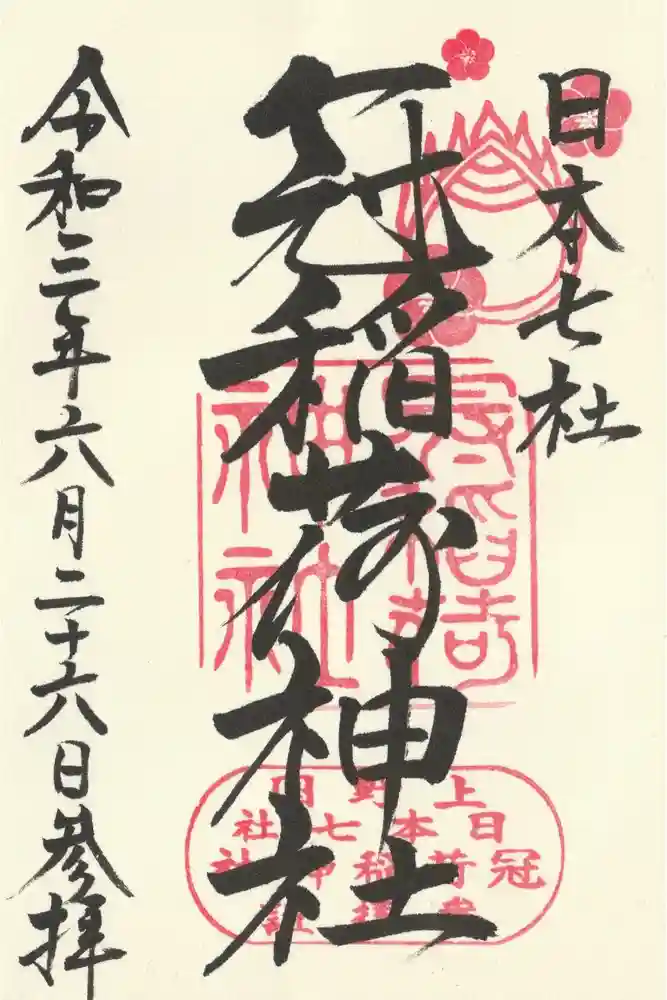 日本七社
冠稲荷神社
令和三年六月二十六日参拝
冠稲荷
神社
上野国
日本七社
冠稲荷神社
参拝証